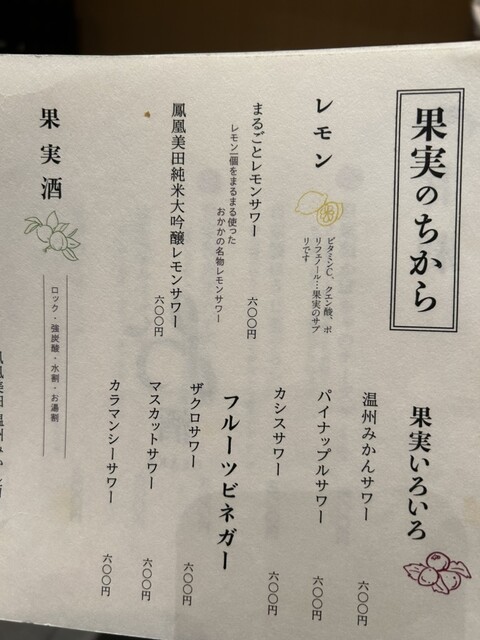 果実のちから
レモン
ビタミンC、クエン酸、ポ
リフェノール…果実のサプ
リです
まるごとレモンサワー
六〇〇円
レモン一個をまるまる使った
おかかの名物レモンサワー
鳳凰美田純米大吟醸レモンサワー
六〇〇円
果実いろいろ
温州みかんサワー
六〇〇円
パイナップルサワー
六〇〇円
カシスサワー
六〇〇円
フルーツビネガー
ザクロサワー
六〇〇円
マスカットサワー
六〇〇円
カラマンシーサワー
六〇〇円
果実酒
ロック・強炭酸・水割・お湯割